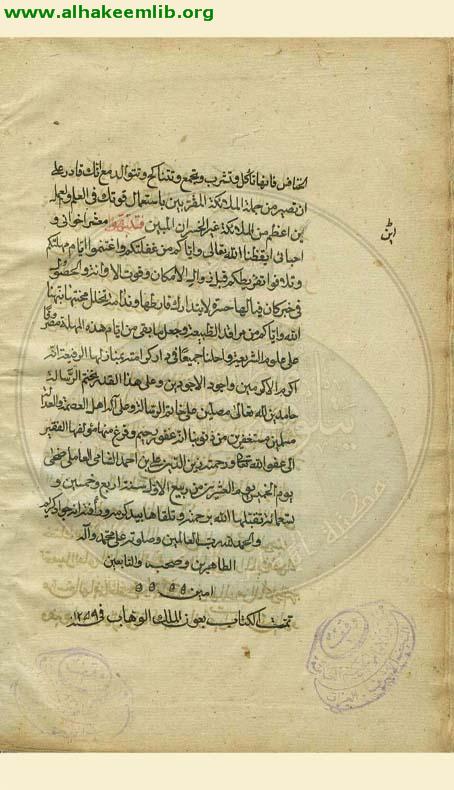 www.alhakeemlib.org
الخنافس فانها تأكل وتشرب وتجمع وتتناكح وتتوالد مع انك قادر على
ان تصير من جملة الملائكة المقربين باستعمال قوتك في العلم والعمل
بل اعظم من الملائكة غير الخسران المبين فتنبهوا معشر اخواني و
احبائي ايقظنا الله تعالى واياكم من غفلتكم واغتنموا ايام مهلتكم
وتلافوا تفريطكم قبل زوال الامكان وفوت الاوان والحصول
في خبر كان فيالها حسرة لا يتدارك فارطها وندامة تخلد محنتها نبهنا
الله واياكم من مراقد الطبيعة وجعل ما بقي من ايام هذه المهلة مصروفا
على علوم الشريعة واحلنا جميعا في دار كرامته بمنازلها الرفيعة انه
اكرم الاكرمين واجود الاجودين وعلى هذا القدر نختم الرسالة
حامدين لله تعالى مصلين على خاتم الرسالة وعلى آله اهل العصمة والعدالة
مسلمين مستغفرين من ذنوبنا انه غفور رحيم وفرغ منها مؤلفها الفقير
الى عفو الله تعالى ورحمته زين الدين بن علي بن احمد الشامي العاملي ضحى
يوم الخميس يوم العشرين من ربيع الاول سنة اربع وخمسين و
تسعمائة تقبلها الله برحمته وتلقاها بيد كرمه ورأفته انه جواد كريم
والحمد لله رب العالمين وصلوته على محمد وآله
الطاهرين وصحبه والتابعين
امين
تمت الكتاب بعون الملك الوهاب في ١٢٥٩